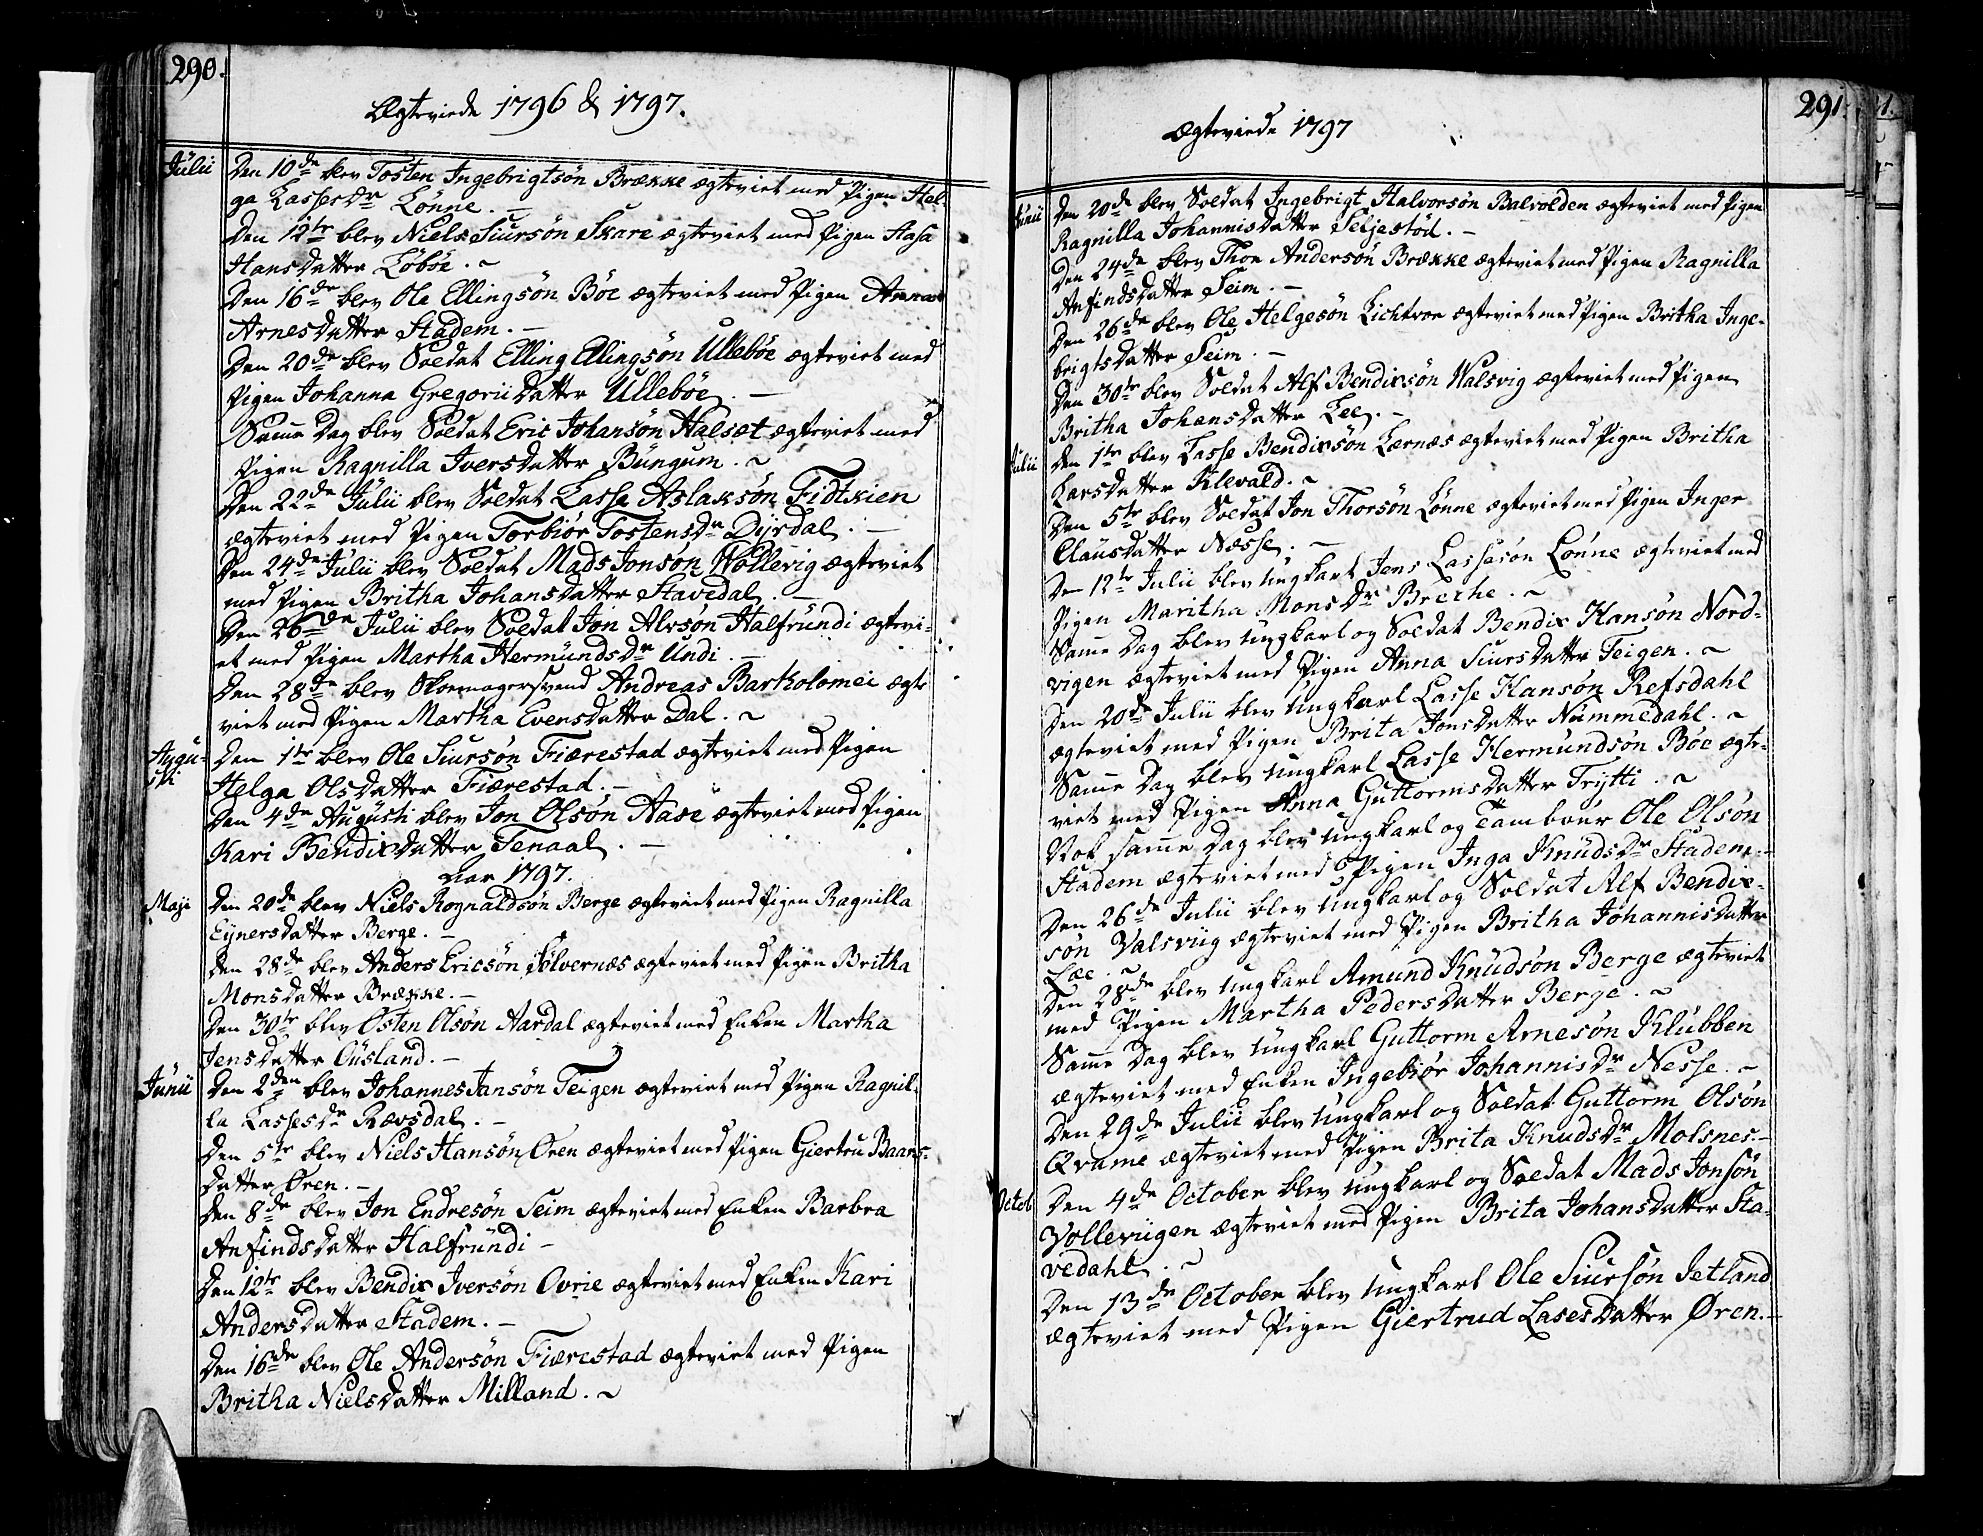 290.
Ægteviede 1796 & 1797.
Julii
Den 10de blev Tosten Ingebrigtsøn Brække ægteviet med Pigen Hel-
ga Lassesdr Lønne. –
Den 12te blev Niels Siursøn Skare ægteviet med Pigen Aasa
Hansdatter Løbøe. ~
Den 16de blev Ole Ellingsøn Böe ægteviet med Pigen Anna
Arnesdatter Stadem. –
Den 20de blev Soldat Elling Ellingsøn Ullebøe ægteviet med
Pigen Johanna Gregoriidatter Ullebøe. –
Samme Dag blev Soldat Eric Johansøn Halsæt ægteviet med
Pigen Ragnilla Iversdatter Büngum. ~
Den 22de Julii blev Soldat Lasse Aslaksøn Fidtkien
ægteviet med Pigen Torbiör Tostensdr Dyrdal. –
Den 24de Julii blev Soldat Mads Jonsøn Wollevig ægteviet
med Pigen Britha Johansdatter Stavedal. –
Den 26de Julii blev Soldat Jon Alvsøn Halfründi ægtevi-
et med Pigen Martha Hermündsdr Undi. –
Den 28de blev Skoemagersvend Andreas Bartholomei ægte
viet med Pigen Martha Evensdatter Dal. ~
Augu-
sti
Den 1te blev Ole Siursøn Fiærestad ægteviet med Pigen
Helga Olsdatter Fiærestad. –
Den 4de Augüsti blev Jon Olsøn Aase ægteviet med Pigen
Kari Bendixdatter Tenaal. –
Aar 1797.
Maji
Den 20de blev Niels Rognaldsøn Berge ægteviet med Pigen Ragnilla
Eynersdatter Berge. –
Den 28de blev Anders Ericsøn Sølvernæs ægteviet med Pigen Britha
Monsdatter Brække. –
Den 30te blev Østen Olsøn Aardal ægteviet med Enken Martha
Jensdatter Oüsland. –
Jünii
Den 2den blev Johannes Jansøn Teigen ægteviet med Pigen Ragnil-
la Lassesdr Rævsdal. –
Den 5te blev Niels Hansøn Øren ægteviet med Pigen Giertru Baars-
datter Øren. –
Den 8de blev Jon Endresøn Seim ægteviet med Enken Barbra
Anfindsdatter Halfründi –
Den 12te blev Bendix Iversøn Ovrie ægteviet med Enken Kari
Andersdatter Stadem. –
Den 16de blev Ole Andersøn Fiærestad ægteviet med Pigen
Britha Nielsdatter Milland. ~
291.
Ægteviede 1797
Junii
Den 20de blev Soldat Ingebrigt Halvorsøn Balvolden ægteviet med Pigen
Ragnilla Johannisdatter Seljestöd. –
Den 24de blev Thoe Andersøn Brække ægteviet med Pigen Ragnilla
Anfindsdatter Seim. –
Den 26de blev Ole Helgesøn Lichtvor ægteviet med Pigen Britha Inge-
brigtsdatter Seim. –
Den 30te blev Soldat Alf Bendixsøn Walsvig ægteviet med Pigen
Britha Johansdatter Lee. –
Julii
Den 1te blev Lasse Bendixsøn Lærnæs ægteviet med Pigen Britha
Larsdatter Klevald. ~
Den 5te blev Soldat Jon Thorsøn Lønne ægteviet med Pigen Inger
Claüsdatter Næsse. –
Den 12te Julii blev ungkarl Jens Lassesøn Lønne ægteviet med
Pigen Maritha Monsdr Breche. ~
Samme Dag blev ungkarl og Soldat Bendix Hansøn Nord-
vigen ægteviet med Pigen Anna Siursdatter Teigen. ~
Den 20de Julii blev ungkarl Lasse Hansøn Refsdahl
ægteviet med Pigen Brita Jonsdatter Nummedahl. ~
Samme Dag blev ungkarl Lasse Hermundsøn Böe ægte-
viet med Pigen Anna Guttormsdatter Trytti. ~
Nok samme Dag blev ungkarl og Tambour Ole Olsøn
Stadem ægteviet med Pigen Inga Knüdsdr Stadem. –
Den 26de Julii blev ungkarl og Soldat Alf Bendix-
søn Valsviig ægteviet med Pigen Britha Johannisdatter
Læe. ~
Den 28de blev ungkarl Amund Knüdsøn Berge ægteviet
med Pigen Martha Pedersdatter Berge. ~
Samme Dag blev ungkarl Guttorm Arnesøn Klübben
ægteviet med Enken Ingebiør Johannisdr Nesse. ~
Den 29de Julii blev ungkarl og Soldat Guttorm Olsøn
Qvame ægteviet med Pigen Brita Knudsdr Molsnes. –
Octob
Den 4de October blev ungkarl og Soldat Mads Jonsøn
Volleviigen ægteviet med Pigen Brita Johansdatter Sta-
vedahl. ~
Den 13de October blev ungkarl Ole Siursøn Jetland
ægteviet med Pigen Giertrud Lasesdatter Øren. –